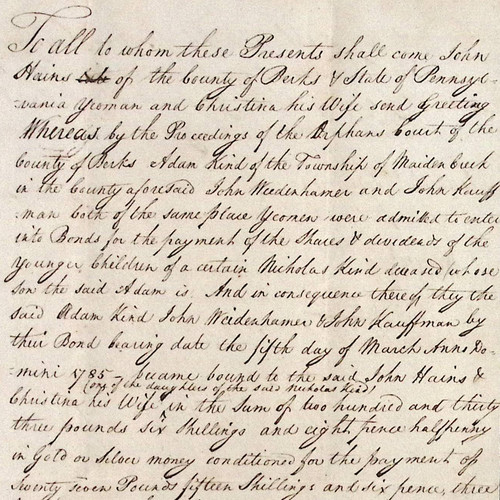 To all to whom these Presents shall come John
Hains of the County of Berks & State of Pennsyl-
-vania Yeoman and Christina his Wife send Greeting
Whereas by the Proceedings of the Orphans Court of the
County of Berks Adam Kind of the Township of Maiden Creek
in the County aforesaid John Weidenhamer and John Kauff
-man both of the same place Yeomen were admitted to enter
into Bonds for the payment of the Shares & dividends of the
Younger Children of a certain Nicholas Kind deceased whose
son the said Adam is. And in consequence thereof they the
said Adam Kind John Weidenhamer & John Kauffman by
their Bond bearing date the fifth day of March Anno Do-
mini 1785 - became bound to the said John Hains &
(one of the daughters of the said Nicholas Kind)
Christina his Wife in the Sum of two hundred and thirty
three pounds six Shillings and eight pence halfpenny
in Gold or Silver money conditioned for the payment of
Twenty seven Pounds fifteen Shillings and six pence, three